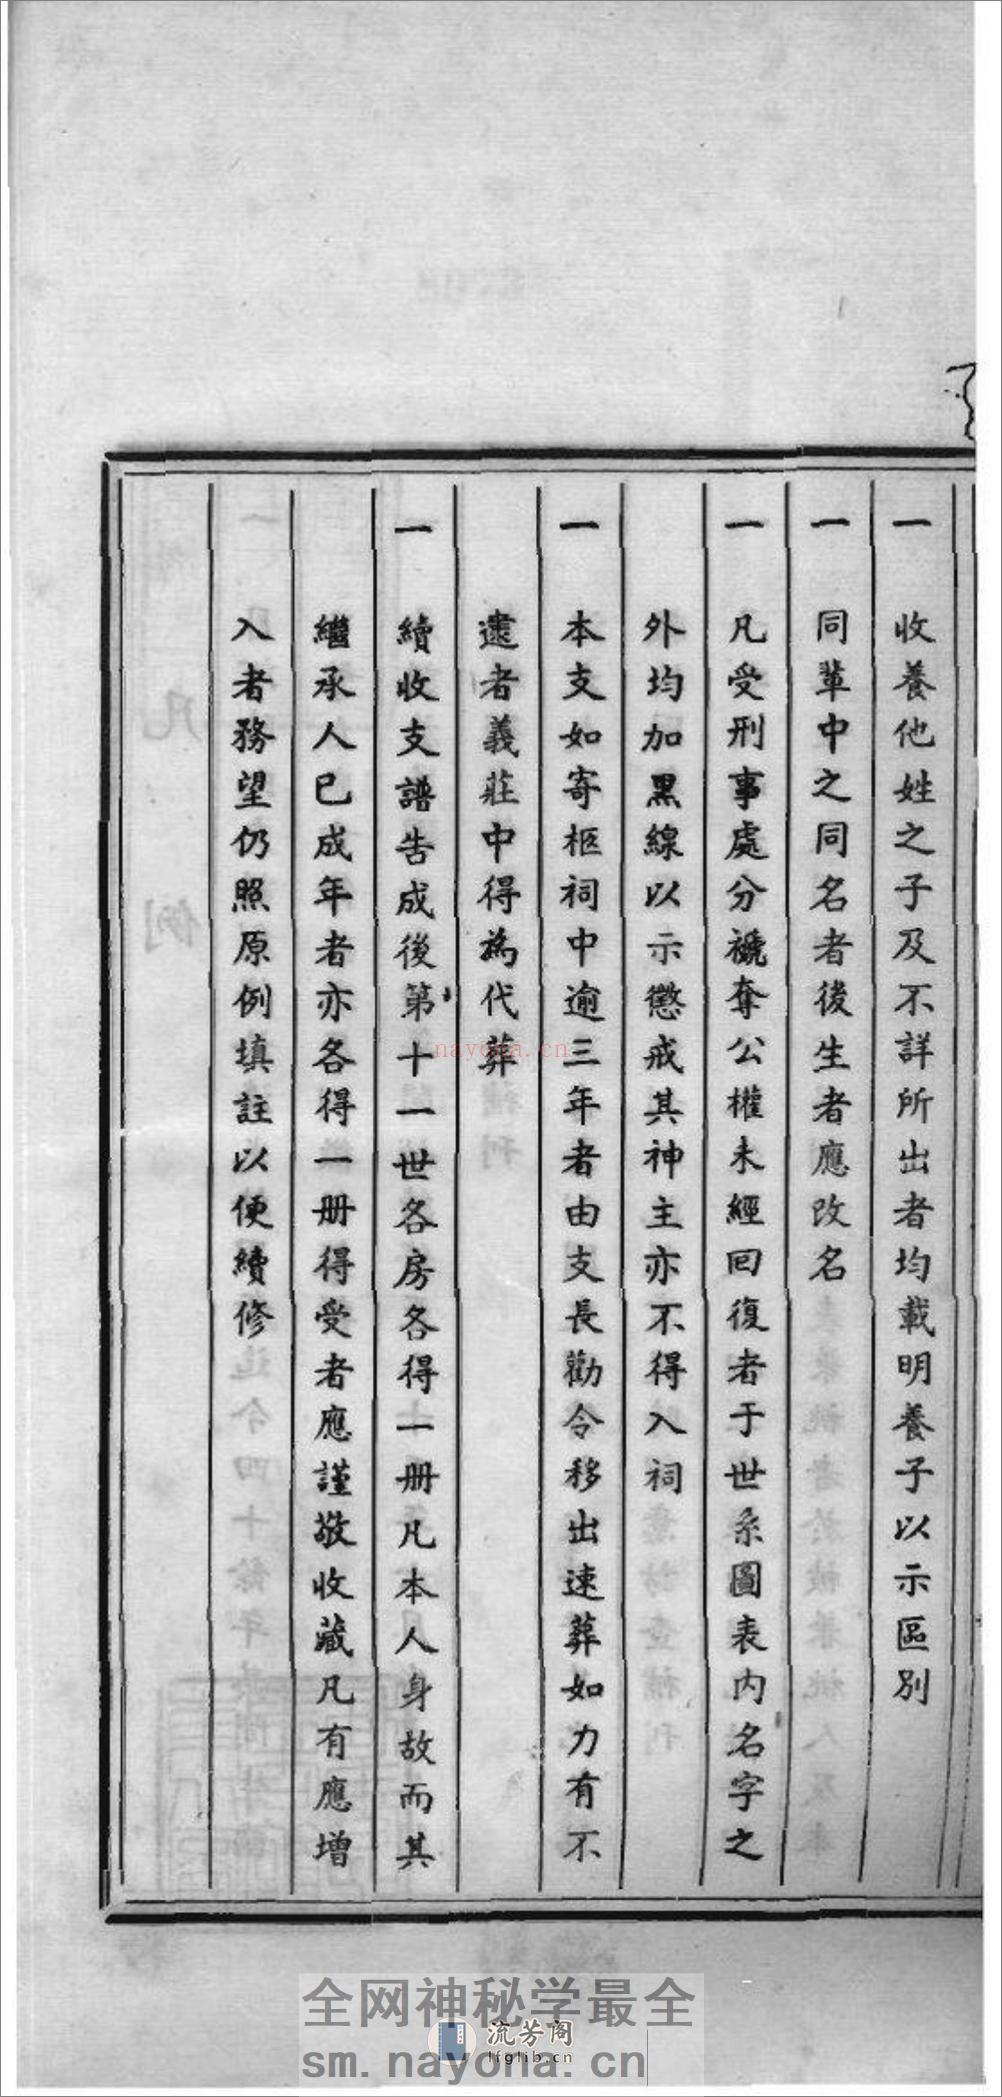 一 收養他姓之子及不詳所出者均載明養子以示區別
一 同輩中之同名者後生者應改名
一 凡受刑事處分褫奪公權未經回復者于世系圖表內名字之
外均加黑線以示懲戒其神主亦不得入祠
一 本支如寄柩祠中逾三年者由支長勸令移出速葬如力有不
逮者義莊中得為代葬
一 續收支譜告成後第十一世各房各得一册凡本人身故而其
繼承人已成年者亦各得一册得受者應謹敬收藏凡有應增
入者務望仍照原例填註以便續修
nayona.cn
全网神秘学最全
流芳阁
lfglib.cn
sm.nayona.cn